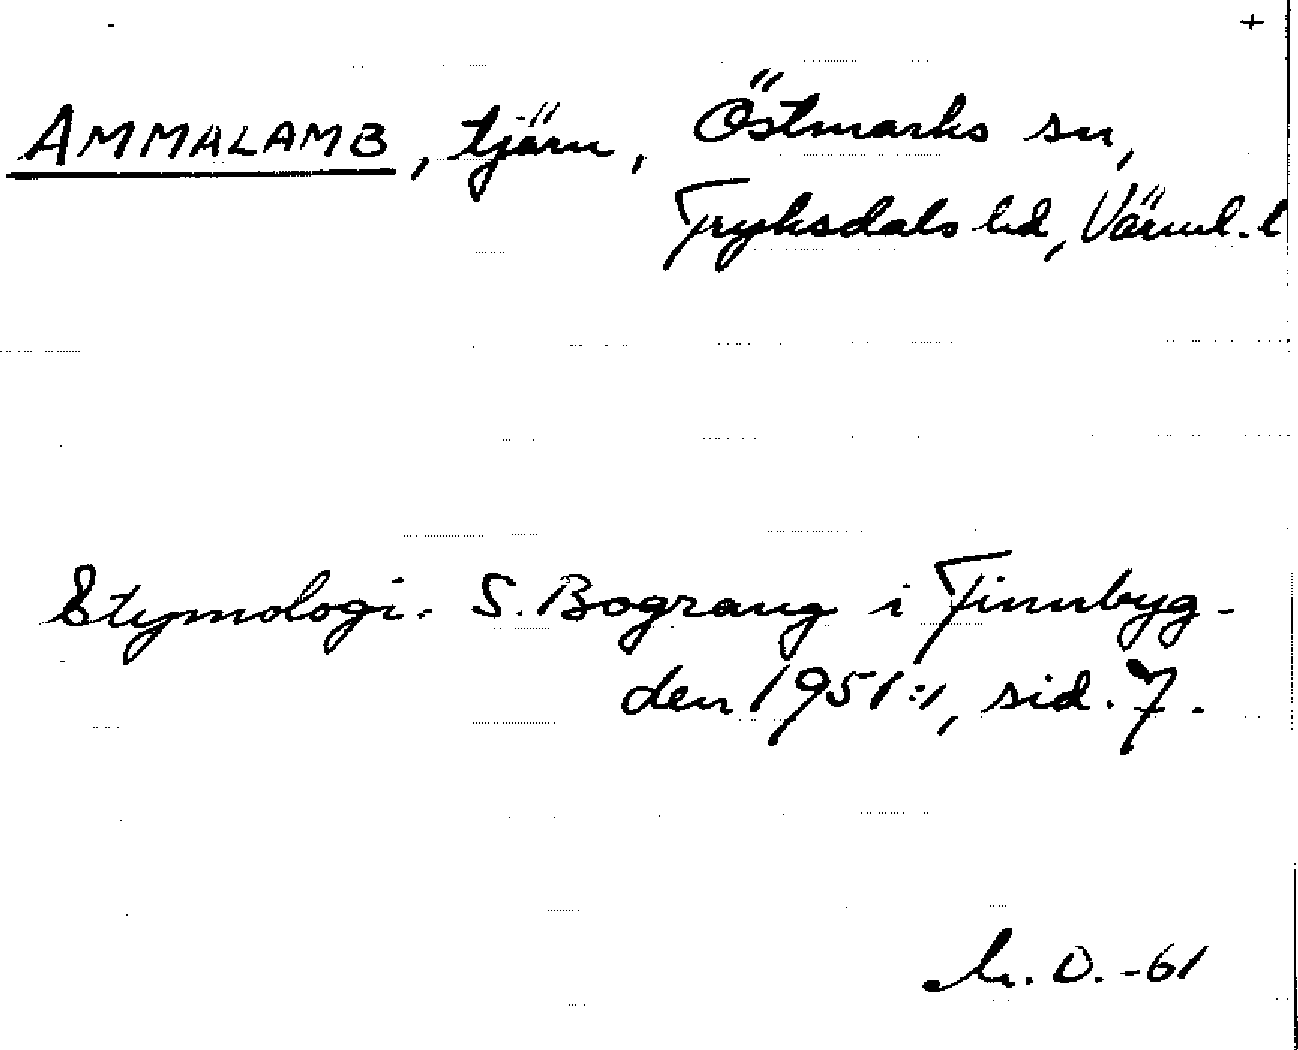 +
AMMALAMB, tjärn, Östmarks sn,
Fryksdals hd, Värml. l
Etymologi. S. Bograng i Finnbyg-
den 1951:1, sid. 7.
M. O. -61